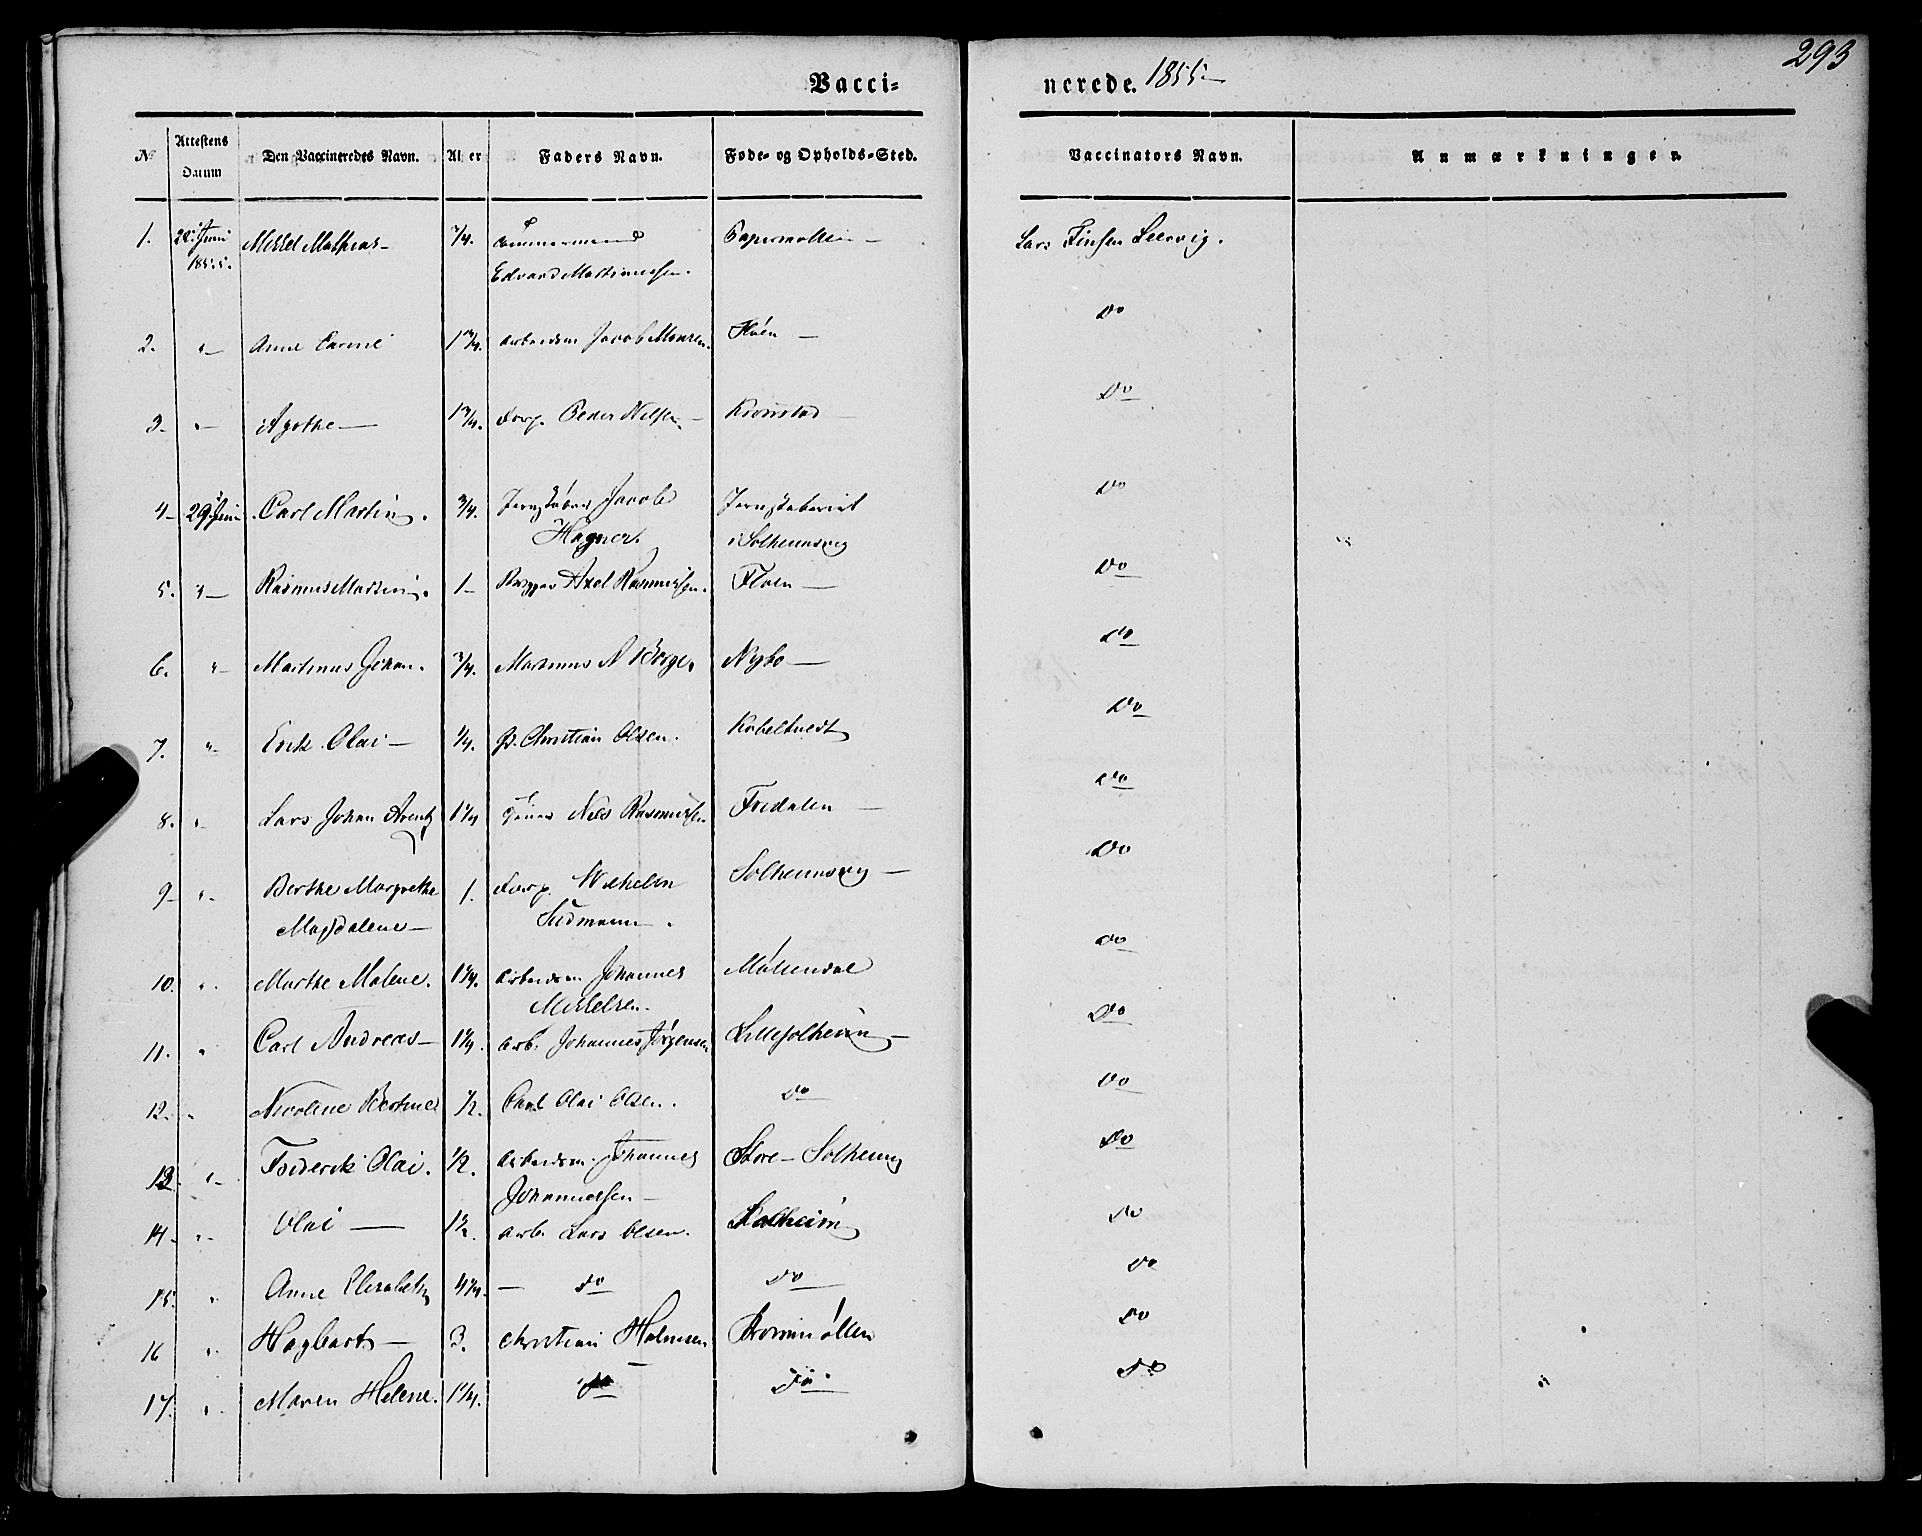 293
Vacci= nerede. 1855
No Attestens Datum Den Vaccineredes Navn. Alder Faders Navn. Føde= og Opholds=Sted. Vaccinators Navn. Anmærkninger.
1. Juni 1855. Mikkel Mathias — 3/4. Tømmermand Papermøllen — Lars Finsen Leervig.
Edvard Martinussen.
2. " — Anne 1 3/4. Arbeidsm Jacob Monsen. Fløen — Do
3 — " — Agathe — 1 3/4. Forp. Peder Nilsen — Kronstad — Do
4 — 29 Juni Carl Martin. 3/4. Jernstøber Jacob Jernstøberiet Do
Hagner. i Solheimsvig
5. " — Rasmus Martin. 1 — Axel Rasmussen. Floen — Do
6. " — Martinus Johan. 3/4. Martinus N Borge. Nybo — Do
7. " Erik Olai — 1/4. Christian Olsen. Kobeltvedt Do
8. " — Lars Johan Arentz 1 1/4 Nils Rasmussen Fredalen — Do
9 — " — Berthe Margrethe 1. Forp. Wilhelm Solheimsvig — Do
Magdalene — Sudmann.
10. " Marthe Malene. 1 1/4. Arbeidsm Johannes Møllendal Do
Mikkelsen.
11. " Carl Andreas — 1 1/4. Arb. Johannes Jørgensen Lillesolheim — Do
12. " Nicoline Bertine 1/2. Carl Olai Olsen. Do Do
13. " — Frederik Olai. 1/2. Arbeidsm. Johannes Store — Solheim Do
Johannessen —
14 — " — Olai — 1 1/2. Arb. Lars Olsen. Solheim Do
15. " Anne Elisabeth 4 1/4. — Do Do Do
16 " Hagbart — 3. Christian Holmsen Kronmøllen Do
17. " Maren Helene. 1 1/4. Do Do Do